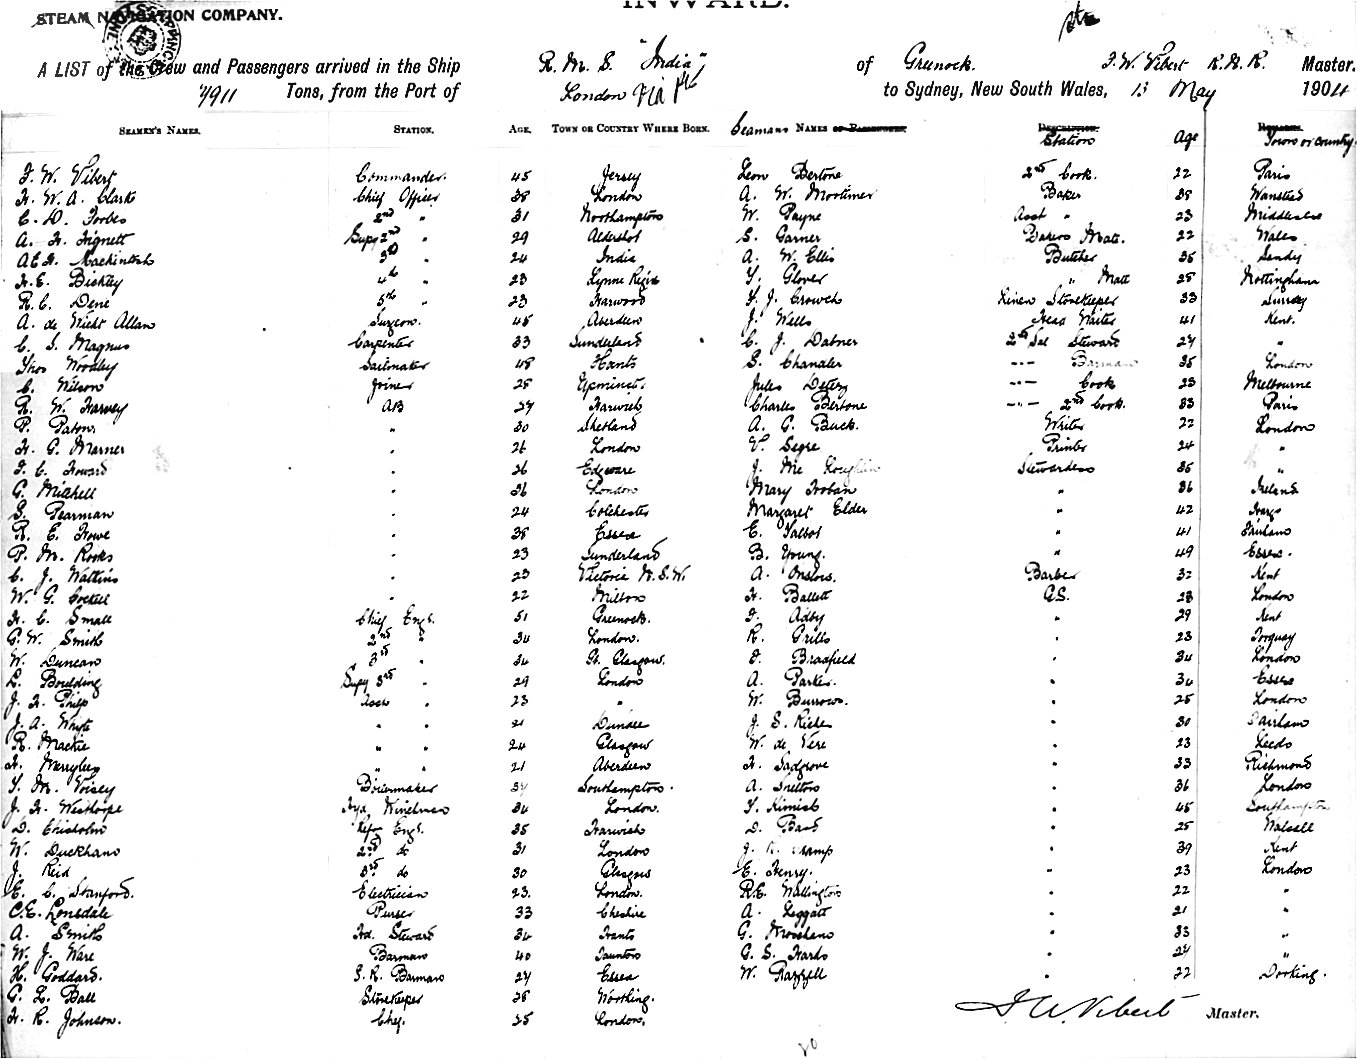 INWARD.
STEAM NAVIGATION COMPANY.
A LIST of the Crew and Passengers arrived in the Ship R. M. S. "India" of Greenock. F. W. Vibert R.N.R. Master.
7911 Tons, from the Port of London via to Sydney, New South Wales, 13 May 1904
SEAMEN'S NAMES. STATION. AGE. TOWN OR COUNTRY WHERE BORN. Seamans NAMES OR PASSENGERS. DESCRIPTION. Station Age REMARKS. Town or Country
F. W. Vibert Commander. 45 Jersey Leon Bertone 2nd Cook. 22 Paris
H. W. A. Clark Chief Officer 38 London A. W. Mortimer Baker 38 Wanstead
C. D. Forbes 2nd " 31 Northampton W. Payne Asst " 23
A. H. Tignett Supy 2nd " 29 Aldershot S. Garner Bakers Mate. 22 Wales
A. E. H. Mackintosh 3rd " 24 India A. W. Ellis Butcher 36 Sandy
H. E. Bickley 4th " 23 Lyme Regis T. Glover " Mate 25 Nottingham
R. C. Dene 5th " 23 Harwood F. J. Crouch Linen Storekeeper 33 Surrey
A. de Allan Surgeon. 45 Aberdeen J. Wells Head Waiter 41 Kent.
C. S. Magnus Carpenter 33 Sunderland C. J. Dabner 2nd Sal Steward 27 "
Thos Woodley Sailmaker 48 Hants S. Chandler --- Barman 35 London
C. Wilson Joiner 25 Upminster. Jules --- Cook 23 Melbourne
R. W. Harvey AB 27 Harwich Charles Bertone --- 2nd Cook. 33 Paris
P. Paton. " 30 Shetland A. G. Buck. Writer 22 London
H. G. Marner " 26 London V. Segre Printer 24 "
F. C. Howard " 26 Edgware J. Mc Loughlin Stewardess 35
G. Mitchell " 36 London Mary Hoban " 36 Ireland
S. Pearman " 24 Colchester Margaret Elder " 42
R. E. Howe " 38 Essex E. Talbot " 41 Fareham
P. M. Rooks " 23 Sunderland B. Young. " 49 Essex.
C. J. Watkins " 23 Victoria N.S.W. A. Onslow. Barber 32 Kent
W. G. Cockell " 22 Milton H. Ballett G.S. 28 London
H. C. Small Chief Engr. 51 Greenock. F. Adby " 29 Kent
G. W. Smith 2nd " 34 London. R. Grills " 23 Torquay
W. Duncan 3rd " 34 Glasgow. F. Bradfield " 34 London
L. Boulding Supy 3rd " 29 London A. Parker. " 34 Essex
J. H. Philp Asst " 23 " W. Burrows. " 25 London
J. A. Whyte " " 21 Dundee J. S. " 30 Fairham
R. Mackie " " 24 Glasgow W. de Vere " 23 Leeds
H. Merrylees " " 21 Aberdeen H. Sadgrove " 33 Richmond
T. M. Voisey Boilermaker 37 Southampton. A. Snelton " 36 London
J. H. Westhorpe Hyd Winchman 34 London. T. Kimish " 45 Southampton
D. Chisholm Refrg Engr. 35 Harwich D. Band " 25 Walsall
W. Duckham 2nd do 31 London J. R. Champ " 39 Kent
J. Reid 3rd do 30 Glasgow E. Henry. " 23 London
E. C. Stanford. Electrician 23. London. R. E. Wallington " 22 "
C. E. Lonsdale Purser 33 Cheshire A. Leggatt " 21 "
A. Smith Hd. Steward 34 Hants G. " 33 "
W. J. Ware Barman 40 Taunton G. S. Hards " 27 "
H. Goddard. S. R. Barman 27 Essex W. " 22 Dorking.
G. L. Ball Storekeeper 28 Worthing.
H. R. Johnson. Chef. 25 London.
F. W. Vibert Master.